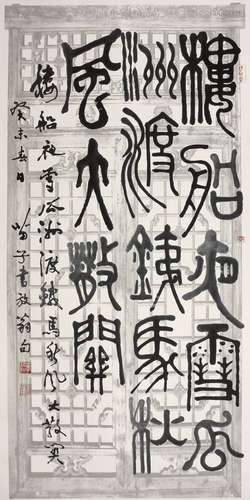 樓船夜雪瓜
洲渡鐵馬秋
風大散關
楼船夜雪瓜洲渡鐵馬秋風大散关
癸未春日
子書放翁句